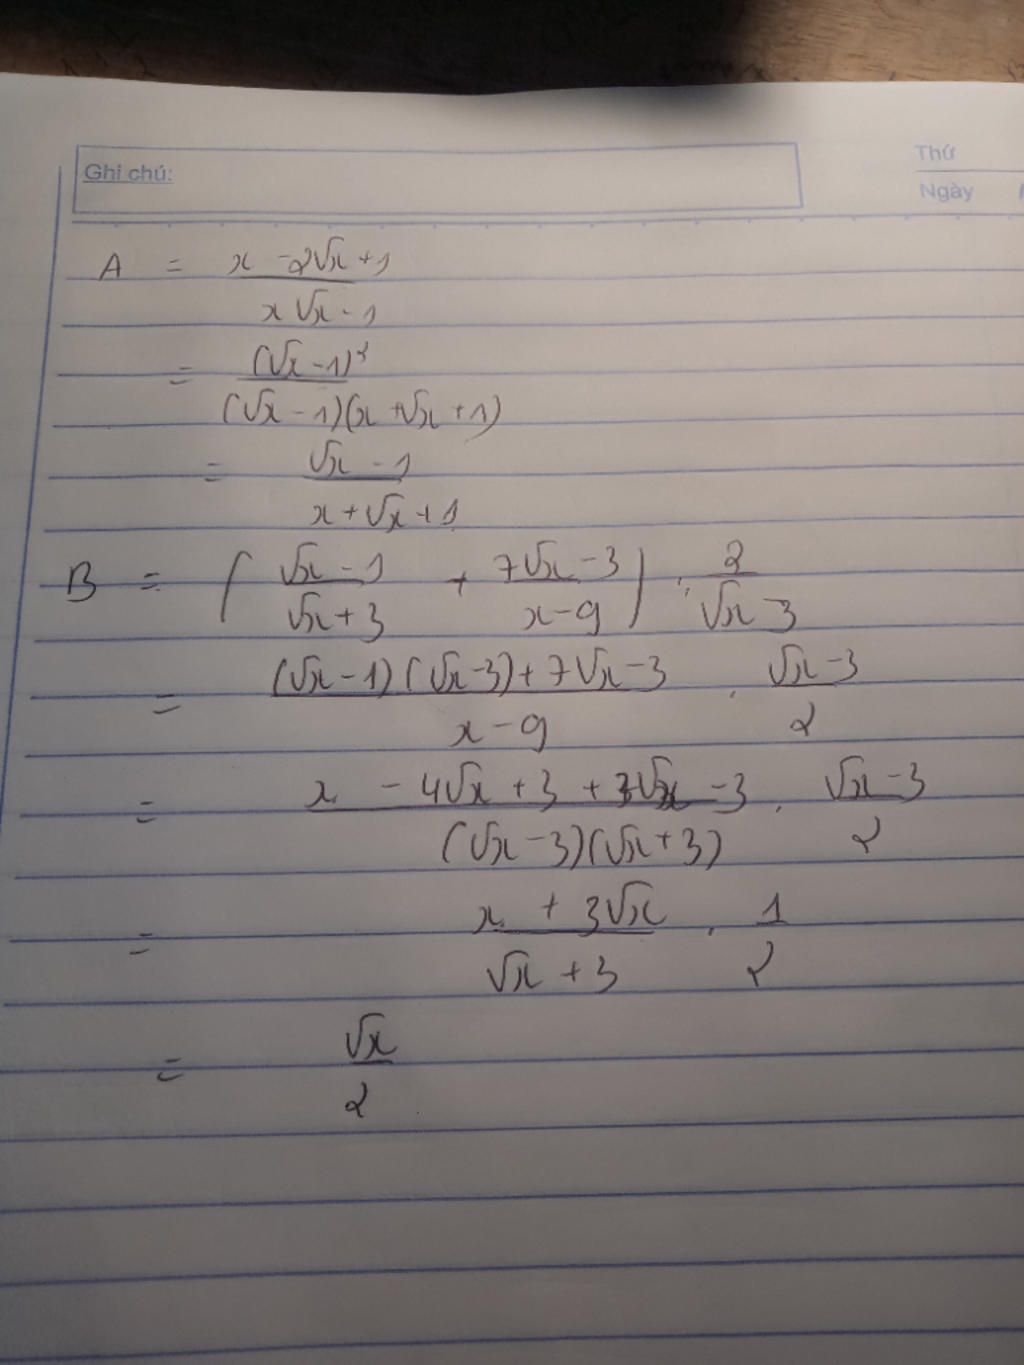 Ghi chú:
Thứ
Ngày
A = (x - 2√x + 1) / (x√x - 1)
= (√x - 1)² / ((√x - 1)(x + √x + 1))
= (√x - 1) / (x + √x + 1)
B = ((√x - 1) / (√x + 3) + (7√x - 3) / (x - 9)) : 2 / (√x - 3)
= ((√x - 1)(√x - 3) + 7√x - 3) / (x - 9) . (√x - 3) / 2
= (x - 4√x + 3 + 7√x - 3) / ((√x - 3)(√x + 3)) . (√x - 3) / 2
= (x + 3√x) / (√x + 3) . 1 / 2
= √x / 2